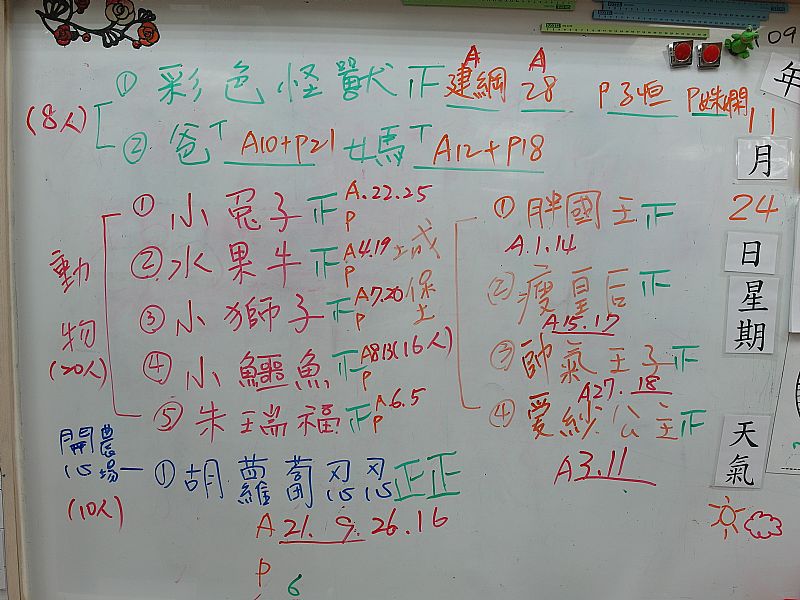 09
年
11
月
24
日
星
期
天
氣
(8人)
① 彩色怪獸正 A建綱 A28 P子恒 P姝嫻
② 爸T A10+P21 媽T A12+P18
動物
(20人)
① 小兔子正 A.22.25 P
② 水果牛正 A4.19 P
③ 小獅子正 A7.20 P
④ 小鱷魚正 A8.13 P
⑤ 朱瑞福正 A.6.5 P
城堡
(16人)
① 胖國王正
A.1.14
② 瘦皇后正
A15.17
③ 帥氣王子正
A27.18
④ 愛紗公主正
A3.11
開心農場
(10人)
① 胡蘿蔔忍忍正正
A 21. 9. 26.16
P
6